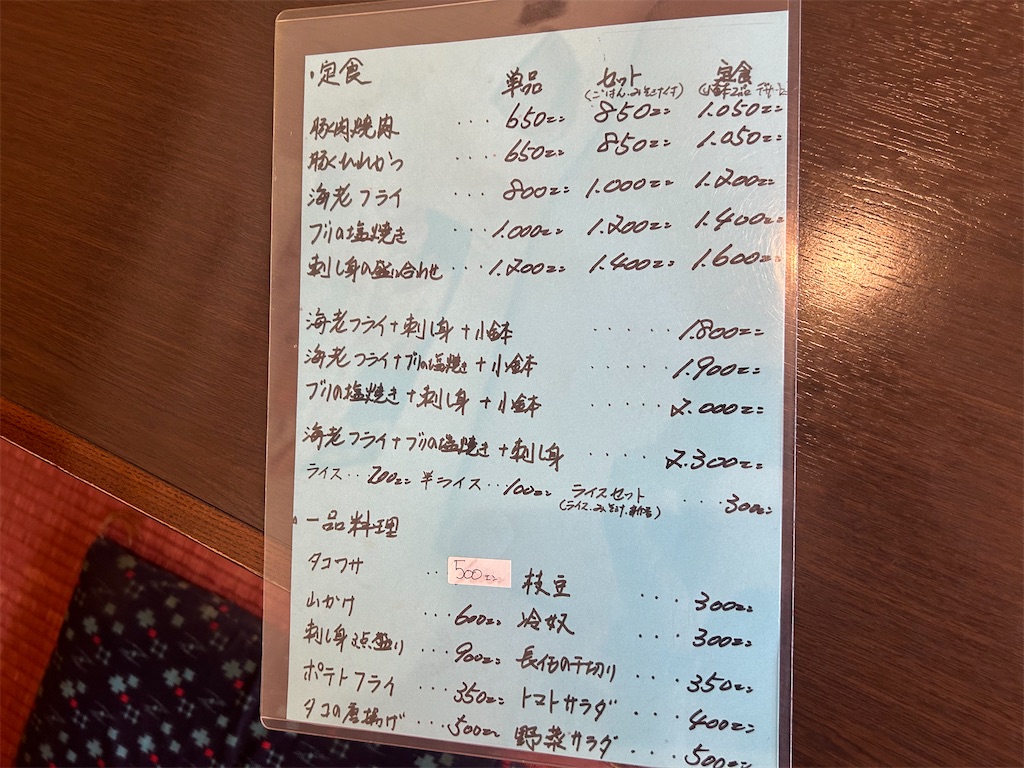 ・定食
単品 セット 定食
(ごはん.みそ汁付) (小鉢2品 デザート
豚肉焼肉 ・・・ 650円 850円 1.050円
豚ひれかつ ・・・・ 650円 850円 1.050円
海老フライ ・・・ 800円 1.000円 1.200円
ブリの塩焼き ・・・ 1.000円 1.200円 1.400円
刺し身の盛り合わせ ・・・ 1.200円 1.400円 1.600円
海老フライ+刺し身+小鉢 ・・・・・・ 1.800円
海老フライ+ブリの塩焼き+小鉢 ・・・・・・ 1.900円
ブリの塩焼き+刺し身+小鉢 ・・・・・ 2.000円
海老フライ+ブリの塩焼き+刺し身 ・・・・・ 2.300円
ライス・・・200円 半ライス・・100円 ライスセット ・・・300円
(ライス.みそ汁.新香)
・一品料理
タコワサ ・・ 500円 枝豆 ・・・ 300円
山かけ ・・・ 600円 冷奴 ・・・ 300円
刺し身3点盛り ・・ 900円 長芋の千切り ・・・ 350円
ポテトフライ ・・・ 350円 トマトサラダ ・・・ 400円
タコの唐揚げ ・・・ 500円 野菜サラダ ・・・ 500円